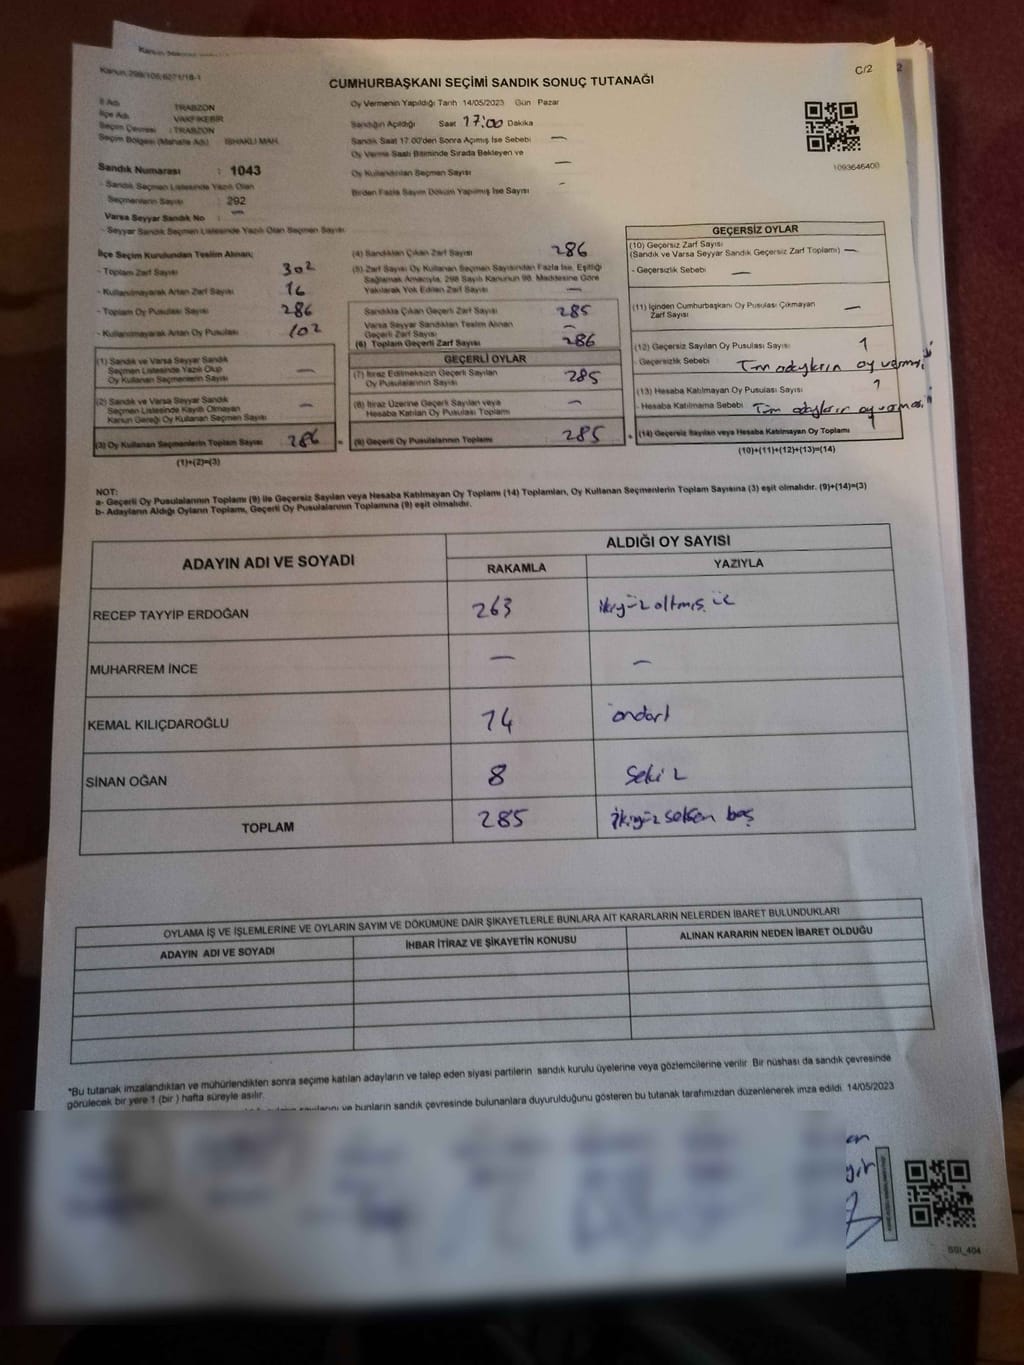 Kanun:298/105;6271/18-1
C/2
2
CUMHURBAŞKANI SEÇİMİ SANDIK SONUÇ TUTANAĞI
İl Adı TRABZON
İlçe Adı VAKFIKEBİR
Seçim Çevresi : TRABZON
Seçim Bölgesi (Mahalle Adı) İSHAKLI MAH.
Sandık Numarası : 1043
- Sandık Seçmen Listesinde Yazılı Olan
Seçmenlerin Sayısı : 292
Varsa Seyyar Sandık No : —
- Seyyar Sandık Seçmen Listesinde Yazılı Olan Seçmen Sayısı:
Oy Vermenin Yapıldığı Tarih 14/05/2023 Gün Pazar
Sandığın Açıldığı Saat 17:00 Dakika
Sandık Saat 17.00'den Sonra Açılmış İse Sebebi —
Oy Verme Saati Bitiminde Sırada Bekleyen ve
Oy Kullandırılan Seçmen Sayısı —
Birden Fazla Sayım Döküm Yapılmış İse Sayısı -
1093646400
İlçe Seçim Kurulundan Teslim Alınan;
- Toplam Zarf Sayısı 302
- Kullanılmayarak Artan Zarf Sayısı 16
- Toplam Oy Pusulası Sayısı 286
- Kullanılmayarak Artan Oy Pusulası 102
(1) Sandık ve Varsa Seyyar Sandık
Seçmen Listesinde Yazılı Olup
Oy Kullanan Seçmenlerin Sayısı —
(2) Sandık ve Varsa Seyyar Sandık
Seçmen Listesinde Kayıtlı Olmayan
Kanun Gereği Oy Kullanan Seçmen Sayısı —
(3) Oy Kullanan Seçmenlerin Toplam Sayısı 286 =
(1)+(2)=(3)
(4) Sandıktan Çıkan Zarf Sayısı 286
(5) Zarf Sayısı Oy Kullanan Seçmen Sayısından Fazla İse, Eşitliği
Sağlamak Amacıyla, 298 Sayılı Kanunun 98. Maddesine Göre
Yakılarak Yok Edilen Zarf Sayısı —
Sandıkta Çıkan Geçerli Zarf Sayısı 285
Varsa Seyyar Sandıktan Teslim Alınan
Geçerli Zarf Sayısı —
(6) Toplam Geçerli Zarf Sayısı 286
GEÇERLİ OYLAR
(7) İtiraz Edilmeksizin Geçerli Sayılan
Oy Pusulalarının Sayısı 285
(8) İtiraz Üzerine Geçerli Sayılan veya
Hesaba Katılan Oy Pusulası Toplamı —
(9) Geçerli Oy Pusulalarının Toplamı 285 +
GEÇERSİZ OYLAR
(10) Geçersiz Zarf Sayısı
(Sandık ve Varsa Seyyar Sandık Geçersiz Zarf Toplamı) —
- Geçersizlik Sebebi —
(11) İçinden Cumhurbaşkanı Oy Pusulası Çıkmayan
Zarf Sayısı —
(12) Geçersiz Sayılan Oy Pusulası Sayısı 1
- Geçersizlik Sebebi Tüm adayların oy
(13) Hesaba Katılmayan Oy Pusulası Sayısı 1
- Hesaba Katılmama Sebebi Tüm adayların oy
(14) Geçersiz Sayılan veya Hesaba Katılmayan Oy Toplamı 1
(10)+(11)+(12)+(13)=(14)
NOT:
a- Geçerli Oy Pusulalarının Toplamı (9) ile Geçersiz Sayılan veya Hesaba Katılmayan Oy Toplamı (14) Toplamları, Oy Kullanan Seçmenlerin Toplam Sayısına (3) eşit olmalıdır. (9)+(14)=(3)
b- Adayların Aldığı Oyların Toplamı, Geçerli Oy Pusulalarının Toplamına (9) eşit olmalıdır.
ADAYIN ADI VE SOYADI ALDIĞI OY SAYISI
RAKAMLA YAZIYLA
RECEP TAYYİP ERDOĞAN 263 ikiyüz altmış üç
MUHARREM İNCE — —
KEMAL KILIÇDAROĞLU 14 ondört
SİNAN OĞAN 8 Sekiz
TOPLAM 285 ikiyüz seksen beş
OYLAMA İŞ VE İŞLEMLERİNE VE OYLARIN SAYIM VE DÖKÜMÜNE DAİR ŞİKAYETLERLE BUNLARA AİT KARARLARIN NELERDEN İBARET BULUNDUKLARI
ADAYIN ADI VE SOYADI İHBAR İTİRAZ VE ŞİKAYETİN KONUSU ALINAN KARARIN NEDEN İBARET OLDUĞU
*Bu tutanak imzalandıktan ve mühürlendikten sonra seçime katılan adayların ve talep eden siyasi partilerin sandık kurulu üyelerine veya gözlemcilerine verilir. Bir nüshası da sandık çevresinde
görülecek bir yere 1 (bir ) hafta süreyle asılır.
ve bunların sandık çevresinde bulunanlara duyurulduğunu gösteren bu tutanak tarafımızdan düzenlenerek imza edildi. 14/05/2023
SSI_404